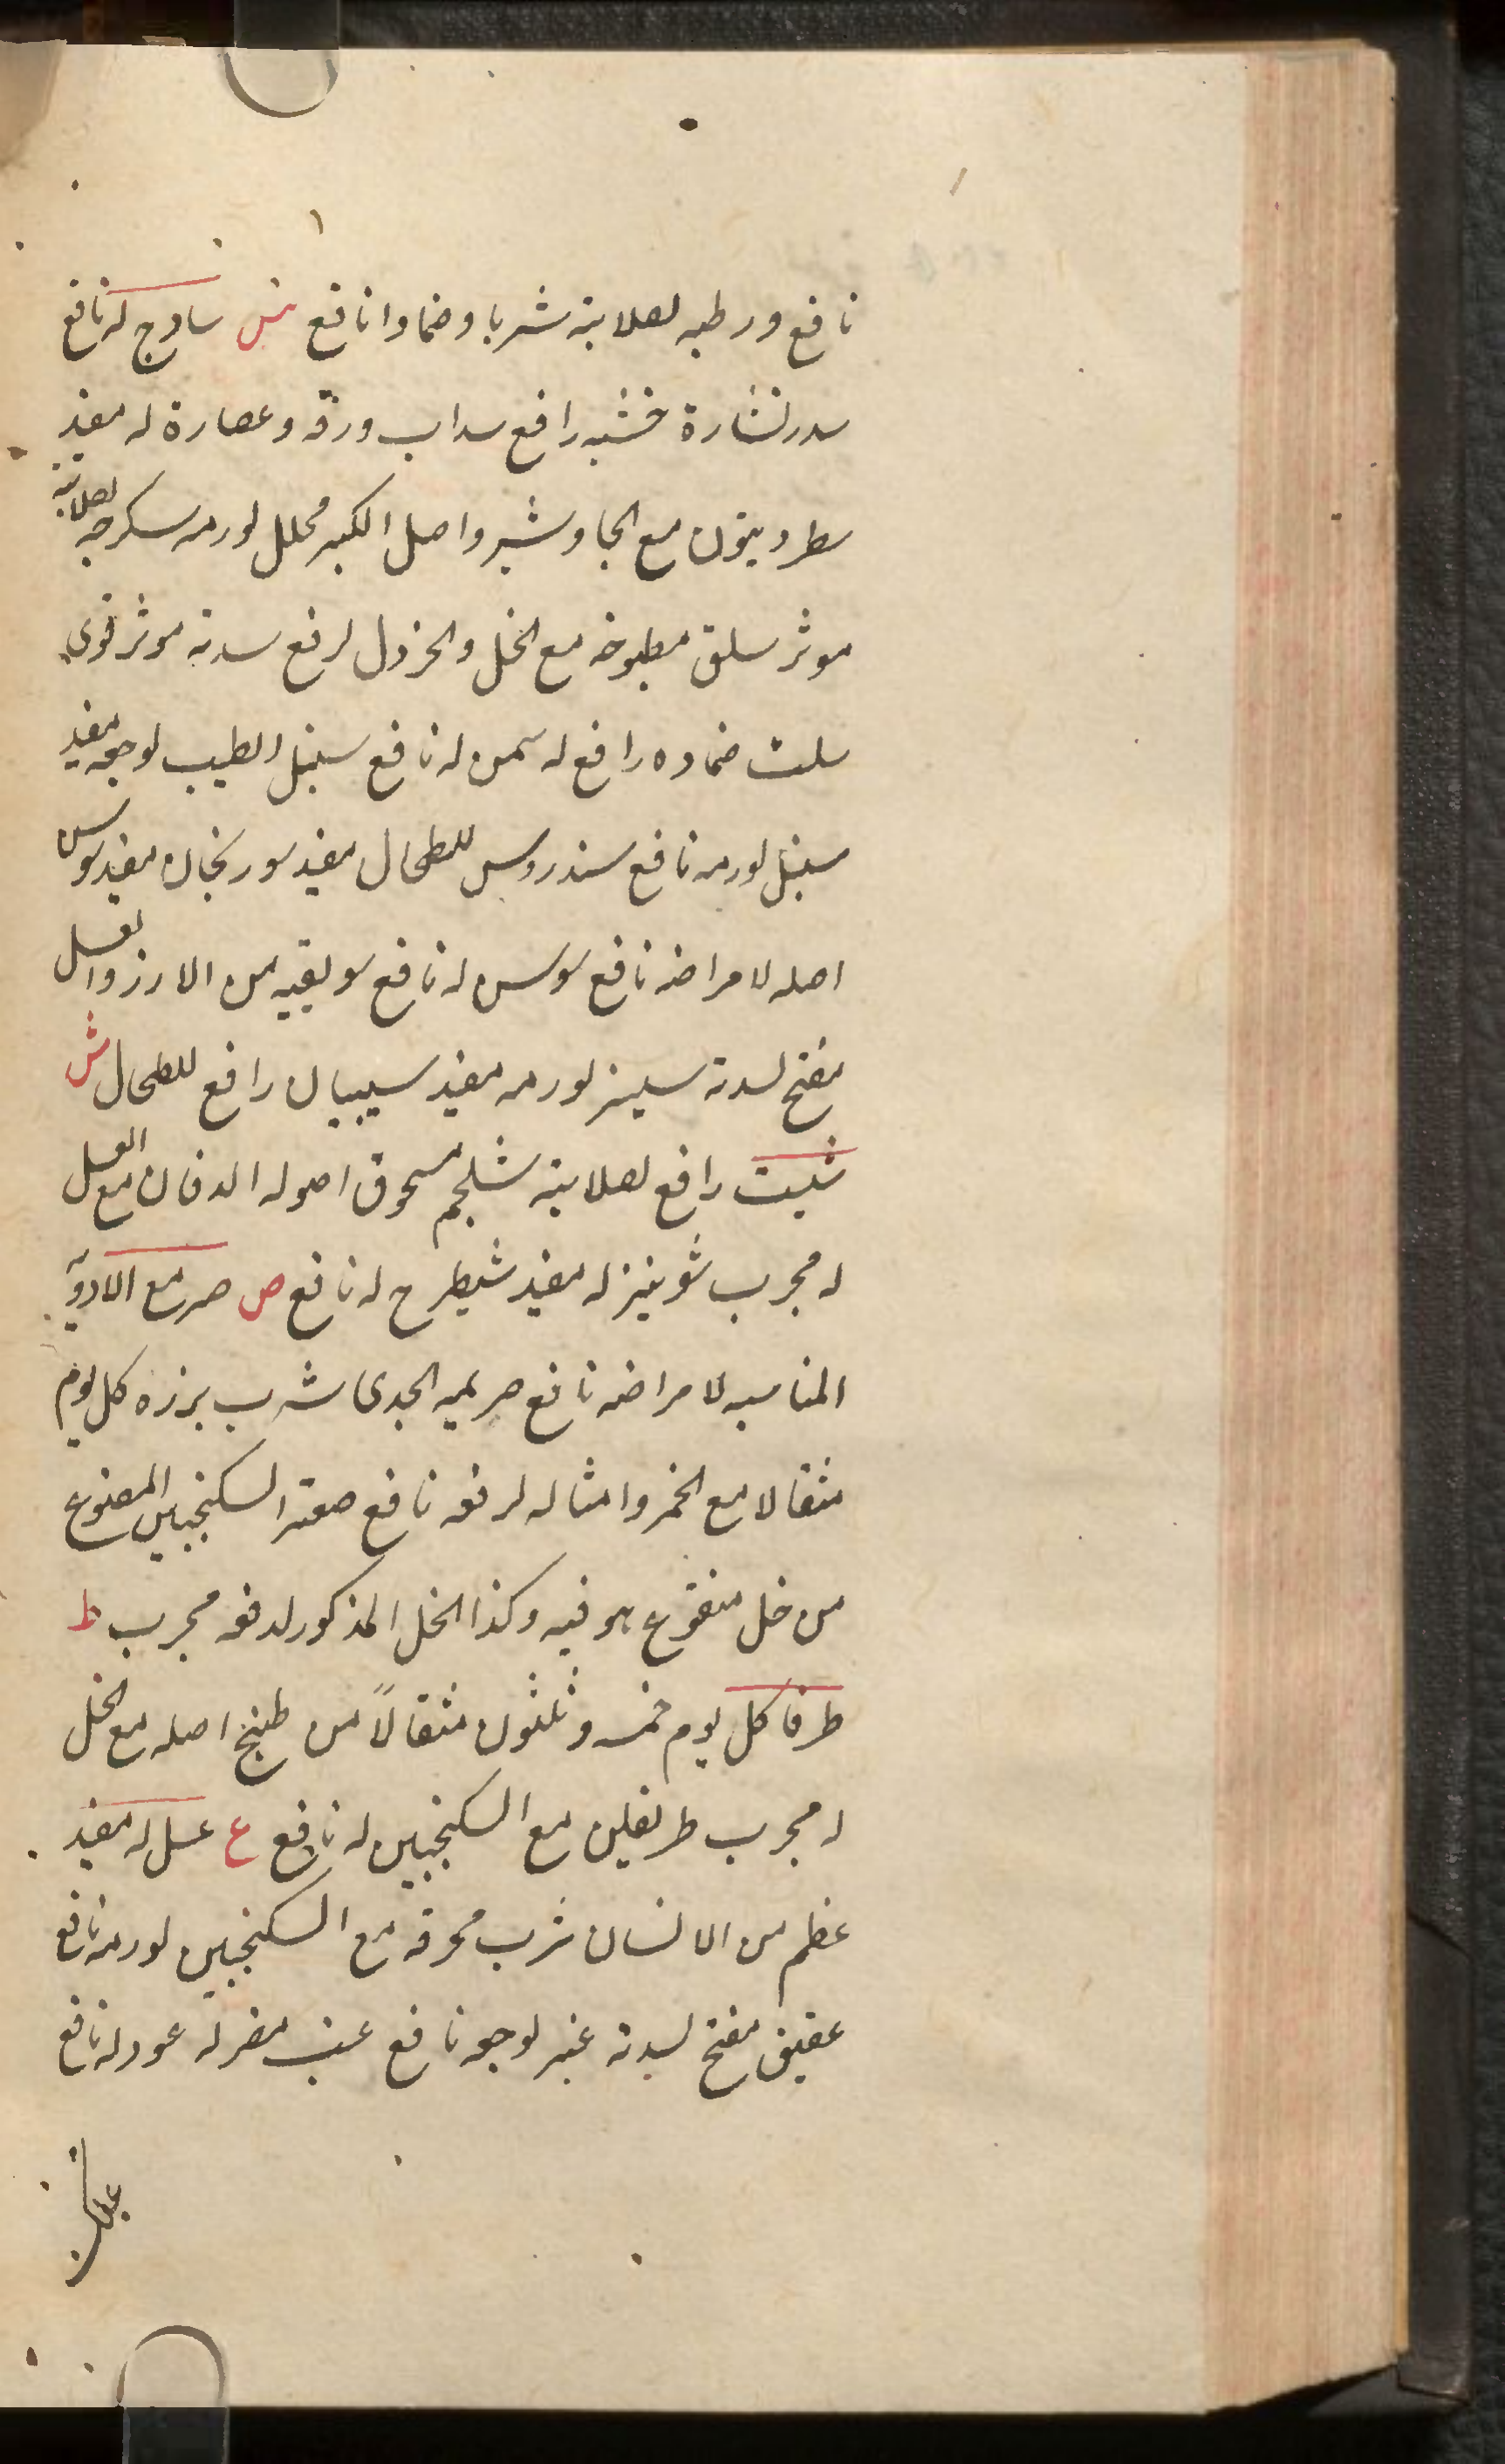 نافع ورطبه لصلابته شربا وضمادا نافع س سادج له نافع
سدر نشارة خشبه رافع سداب ورقه وعصارة له مفيد
مع الجاوشير واصل الكبر محلل لورمه لصلابته
موثر سلق مطبوخه مع الخل والخردل لرفع سدته موثر قوى
سلت ضماده رافع له سمن له نافع سنبل الطيب لوجعه مفيد
سنبل لورمه نافع سندروس للطحال مفيد سورنجان مفيد سوس
اصله لامراضه نافع سوسن له نافع سويقيه من الارز والعسل
مفتح لسدته لورمه مفيد رافع للطحال ش
شبت رافع لصلابته شلجم مسحوق اصوله مع العسل
له مجرب شونيز له مفيد شيطرج له نافع ص صبر مع الادوية
المناسبه لامراضه نافع صريمه الجدى شرب بزره كل يوم
مثقالا مع الخمر وامثاله لرفعه نافع صعتر السكنجبين المصنوع
من خل منقوع هو فيه وكذا الخل المذكور لدفعه مجرب ط
طرفا كل يوم خمسه وثلثون مثقالاً من طبيخ اصله مع الخل
له مجرب طريفلن مع السكنجبين له نافع ع عسل له مفيد
عظم من الانسان شرب محرقه مع السكنجبين لورمه نافع
عقيق مفتح لسدته عنبر لوجعه نافع عنب مضر له عود له نافع